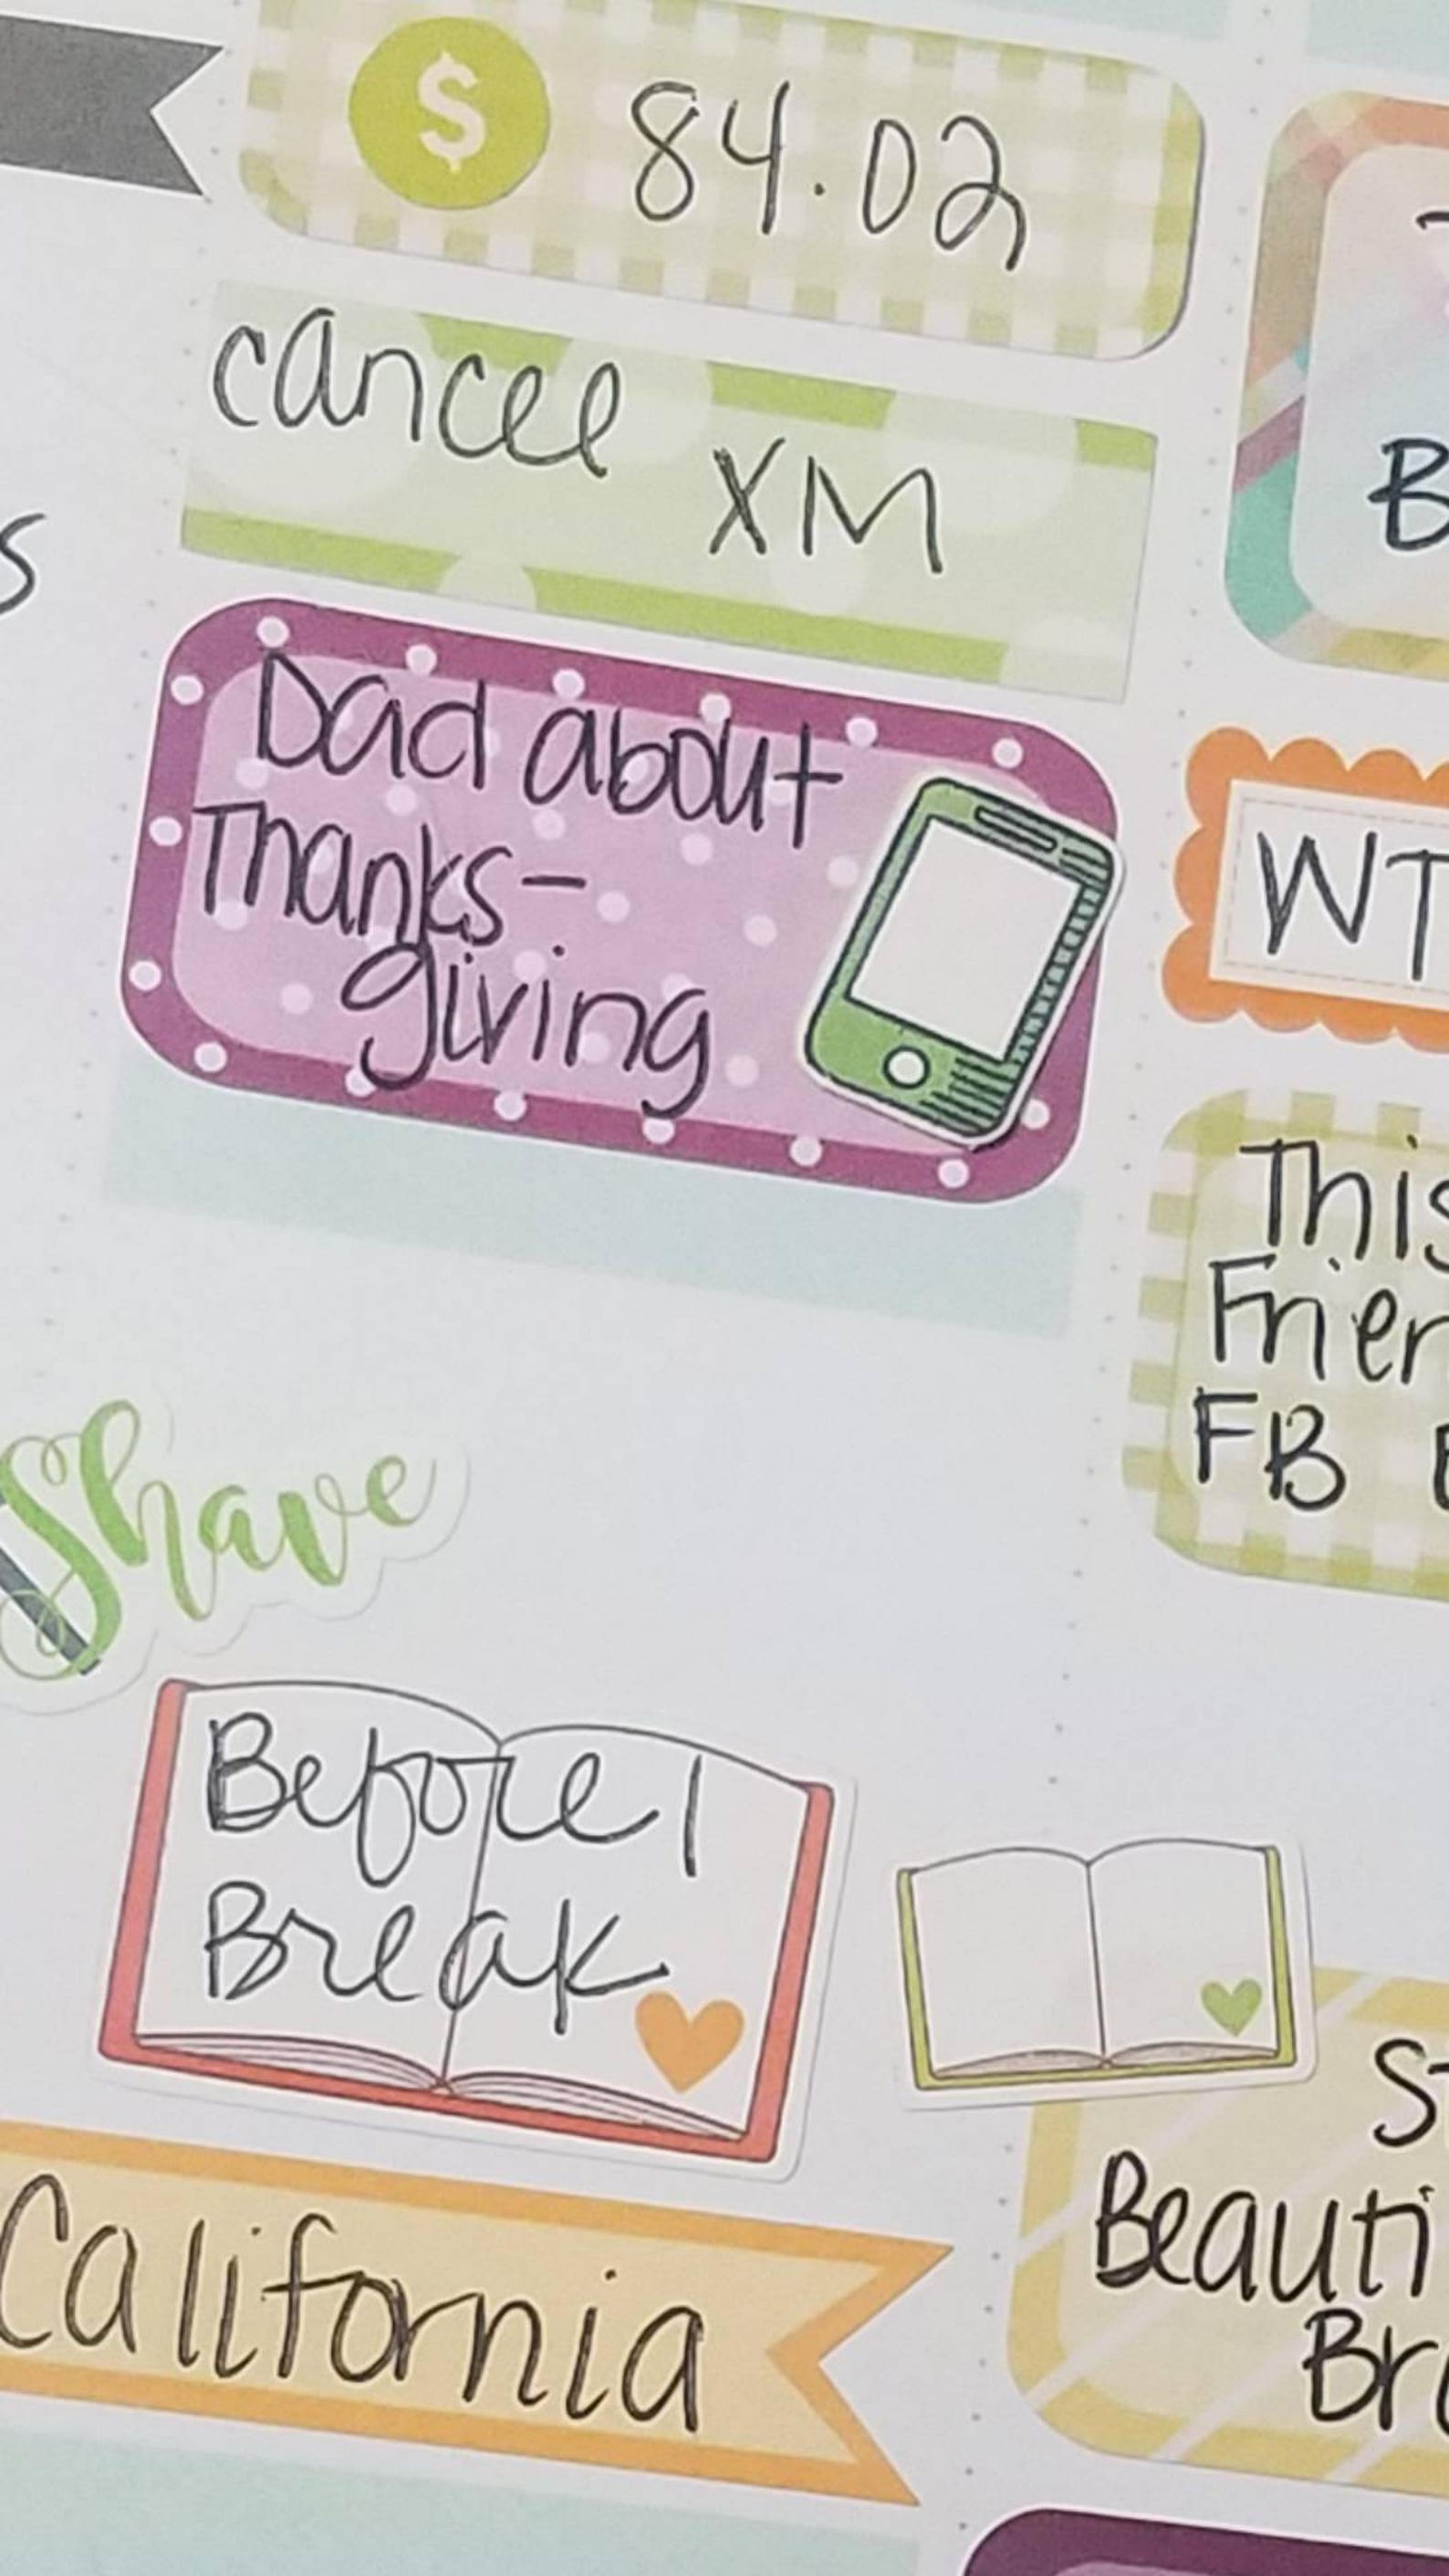 $ 84.02
cancel XM
Dad about
Thanks-
giving
WT
This
FB
Shave
Before I
Break
California